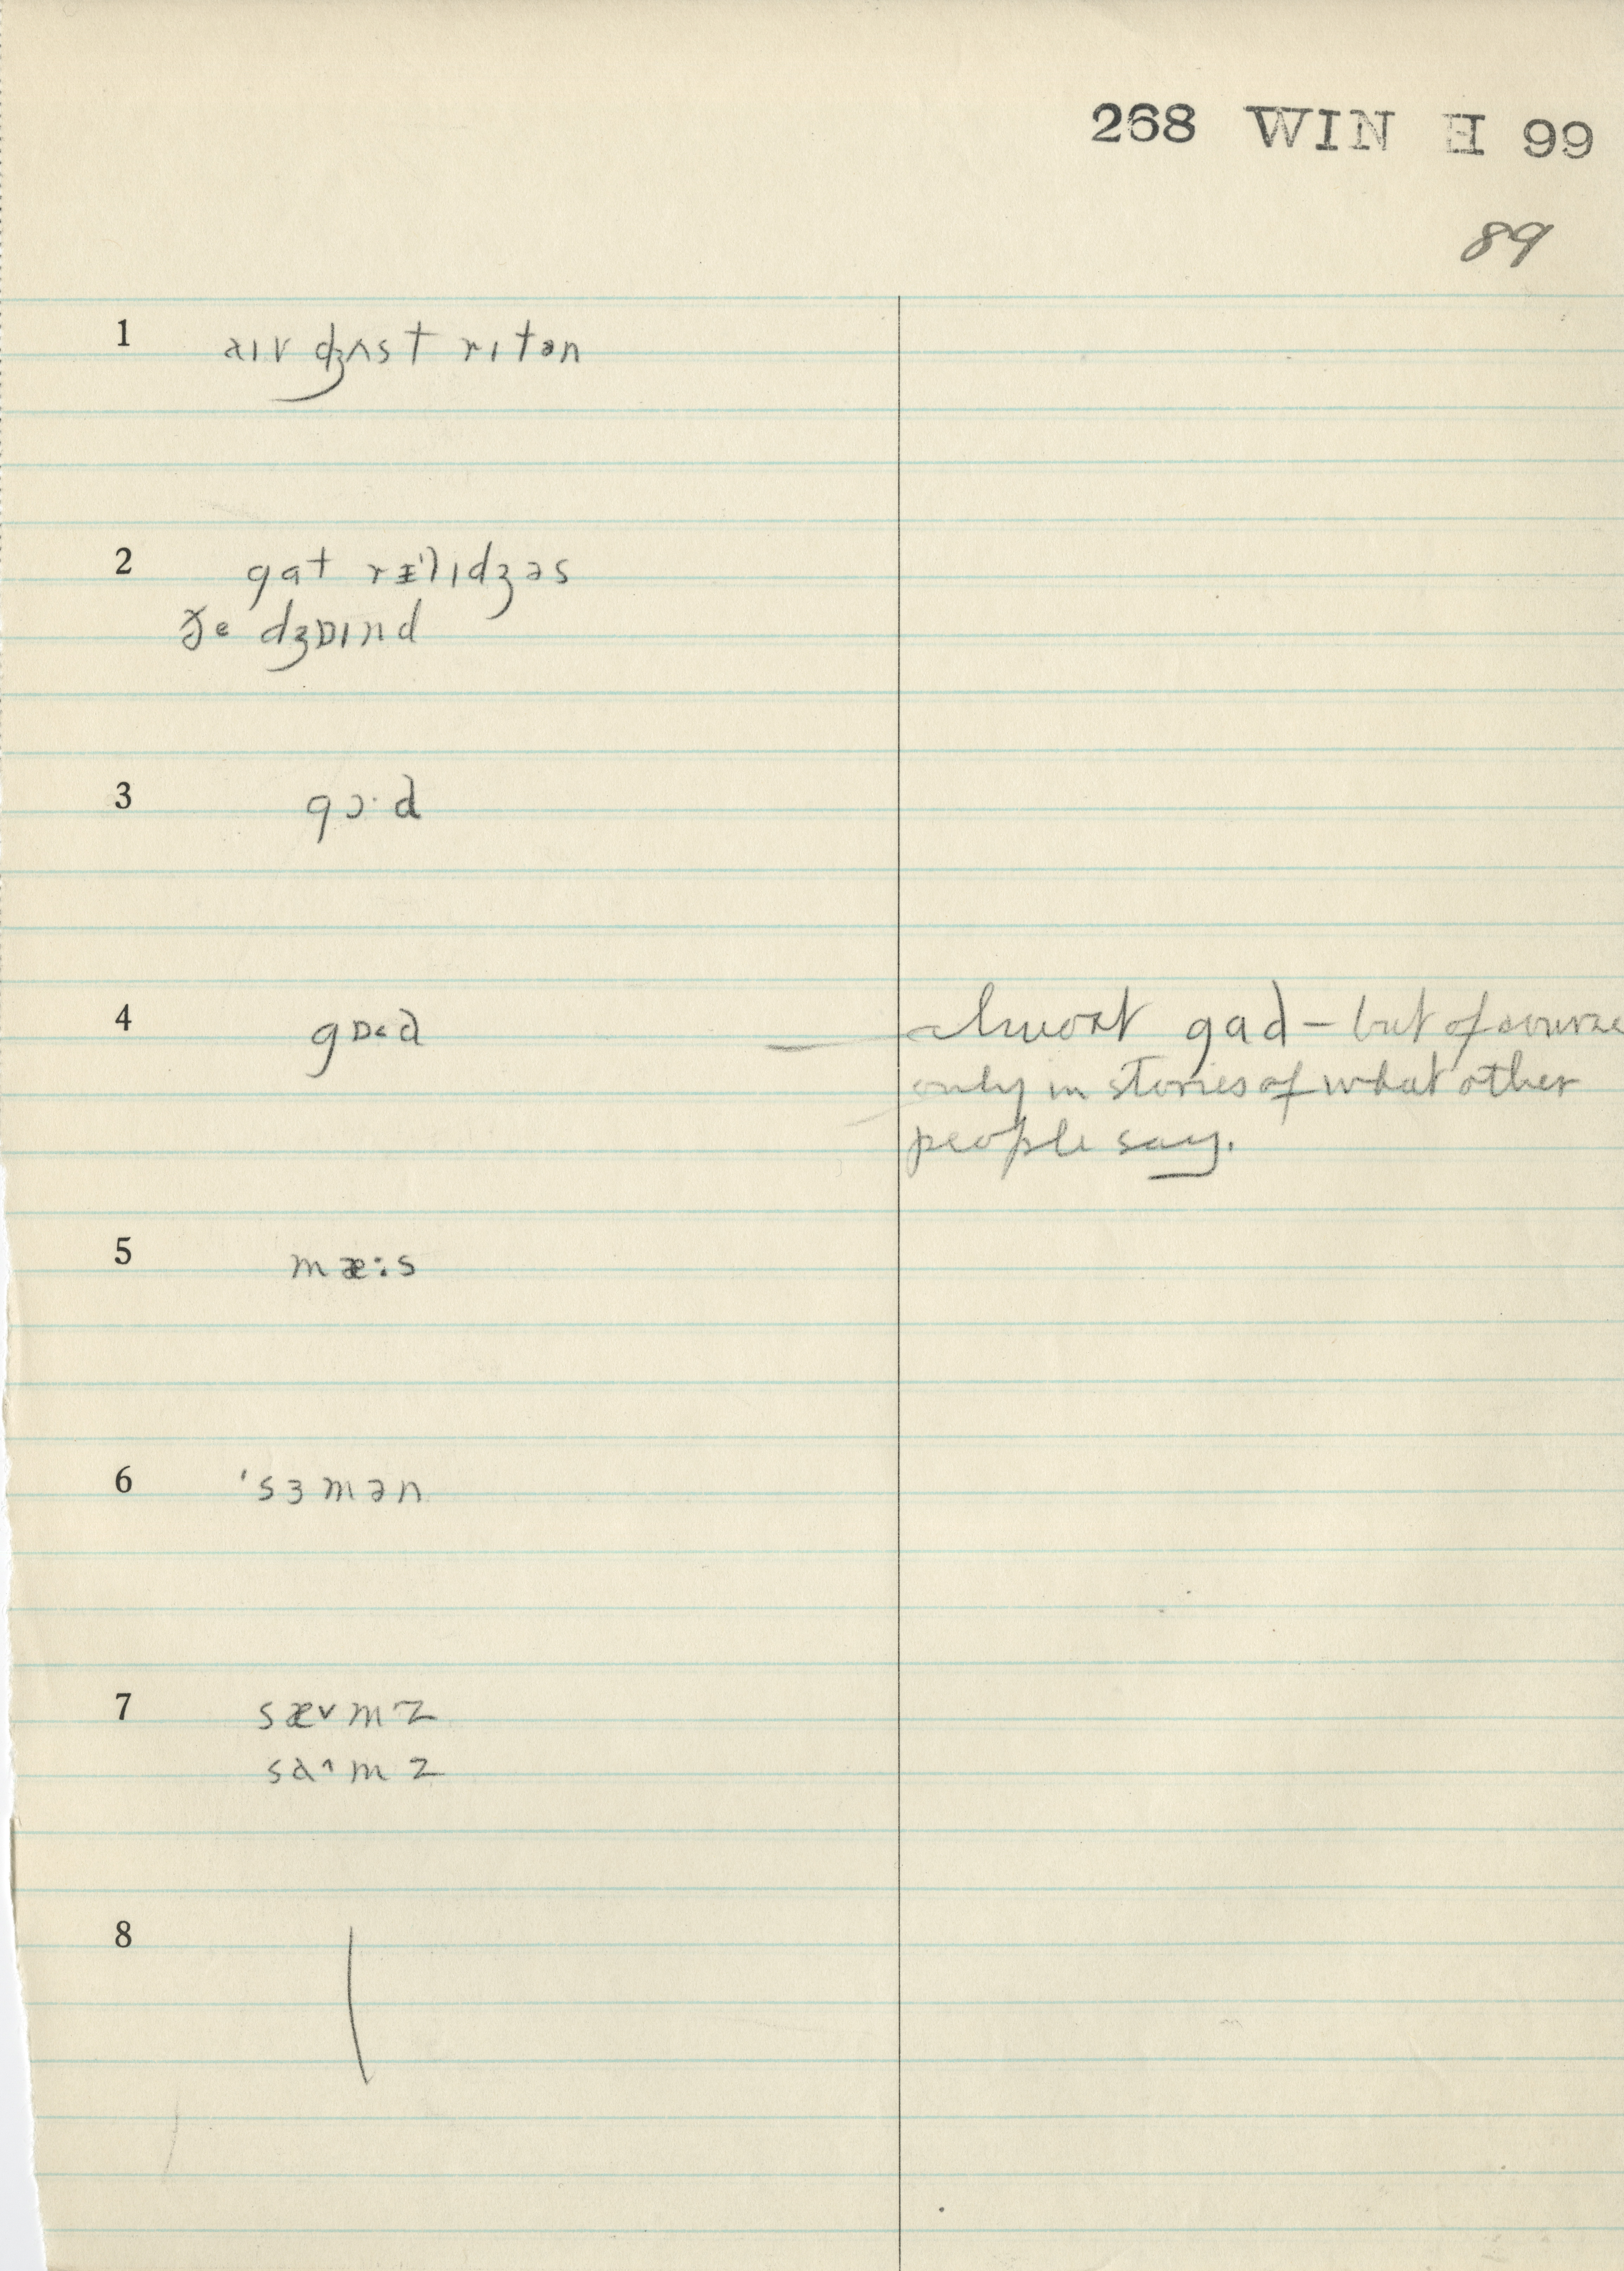 268 WIN H 99
89
1 aɪv dʒʌst rɪtən
2 gat rɪˈlɪdʒəs
ðe dʒɒɪnd
3 gɔ·d
4 gɒ˂d almost gad – but of course
only in stories of what other
people say.
5 mæ:s
6 'sɜmən
7 sæ˅mz
sa˄mz
8